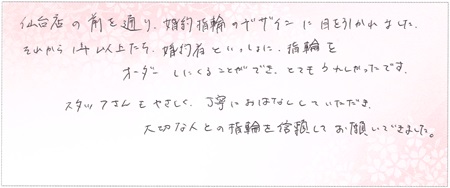 仙台店の前を通り、婚約指輪のデザインに目を引かれました。
それから1年以上たち、婚約者といっしょに、指輪を
オーダーしにくることができ、とてもうれしかったです。
スタッフさんもやさしく、丁寧におはなししていただき、
大切な人との指輪を信頼してお願いできました。